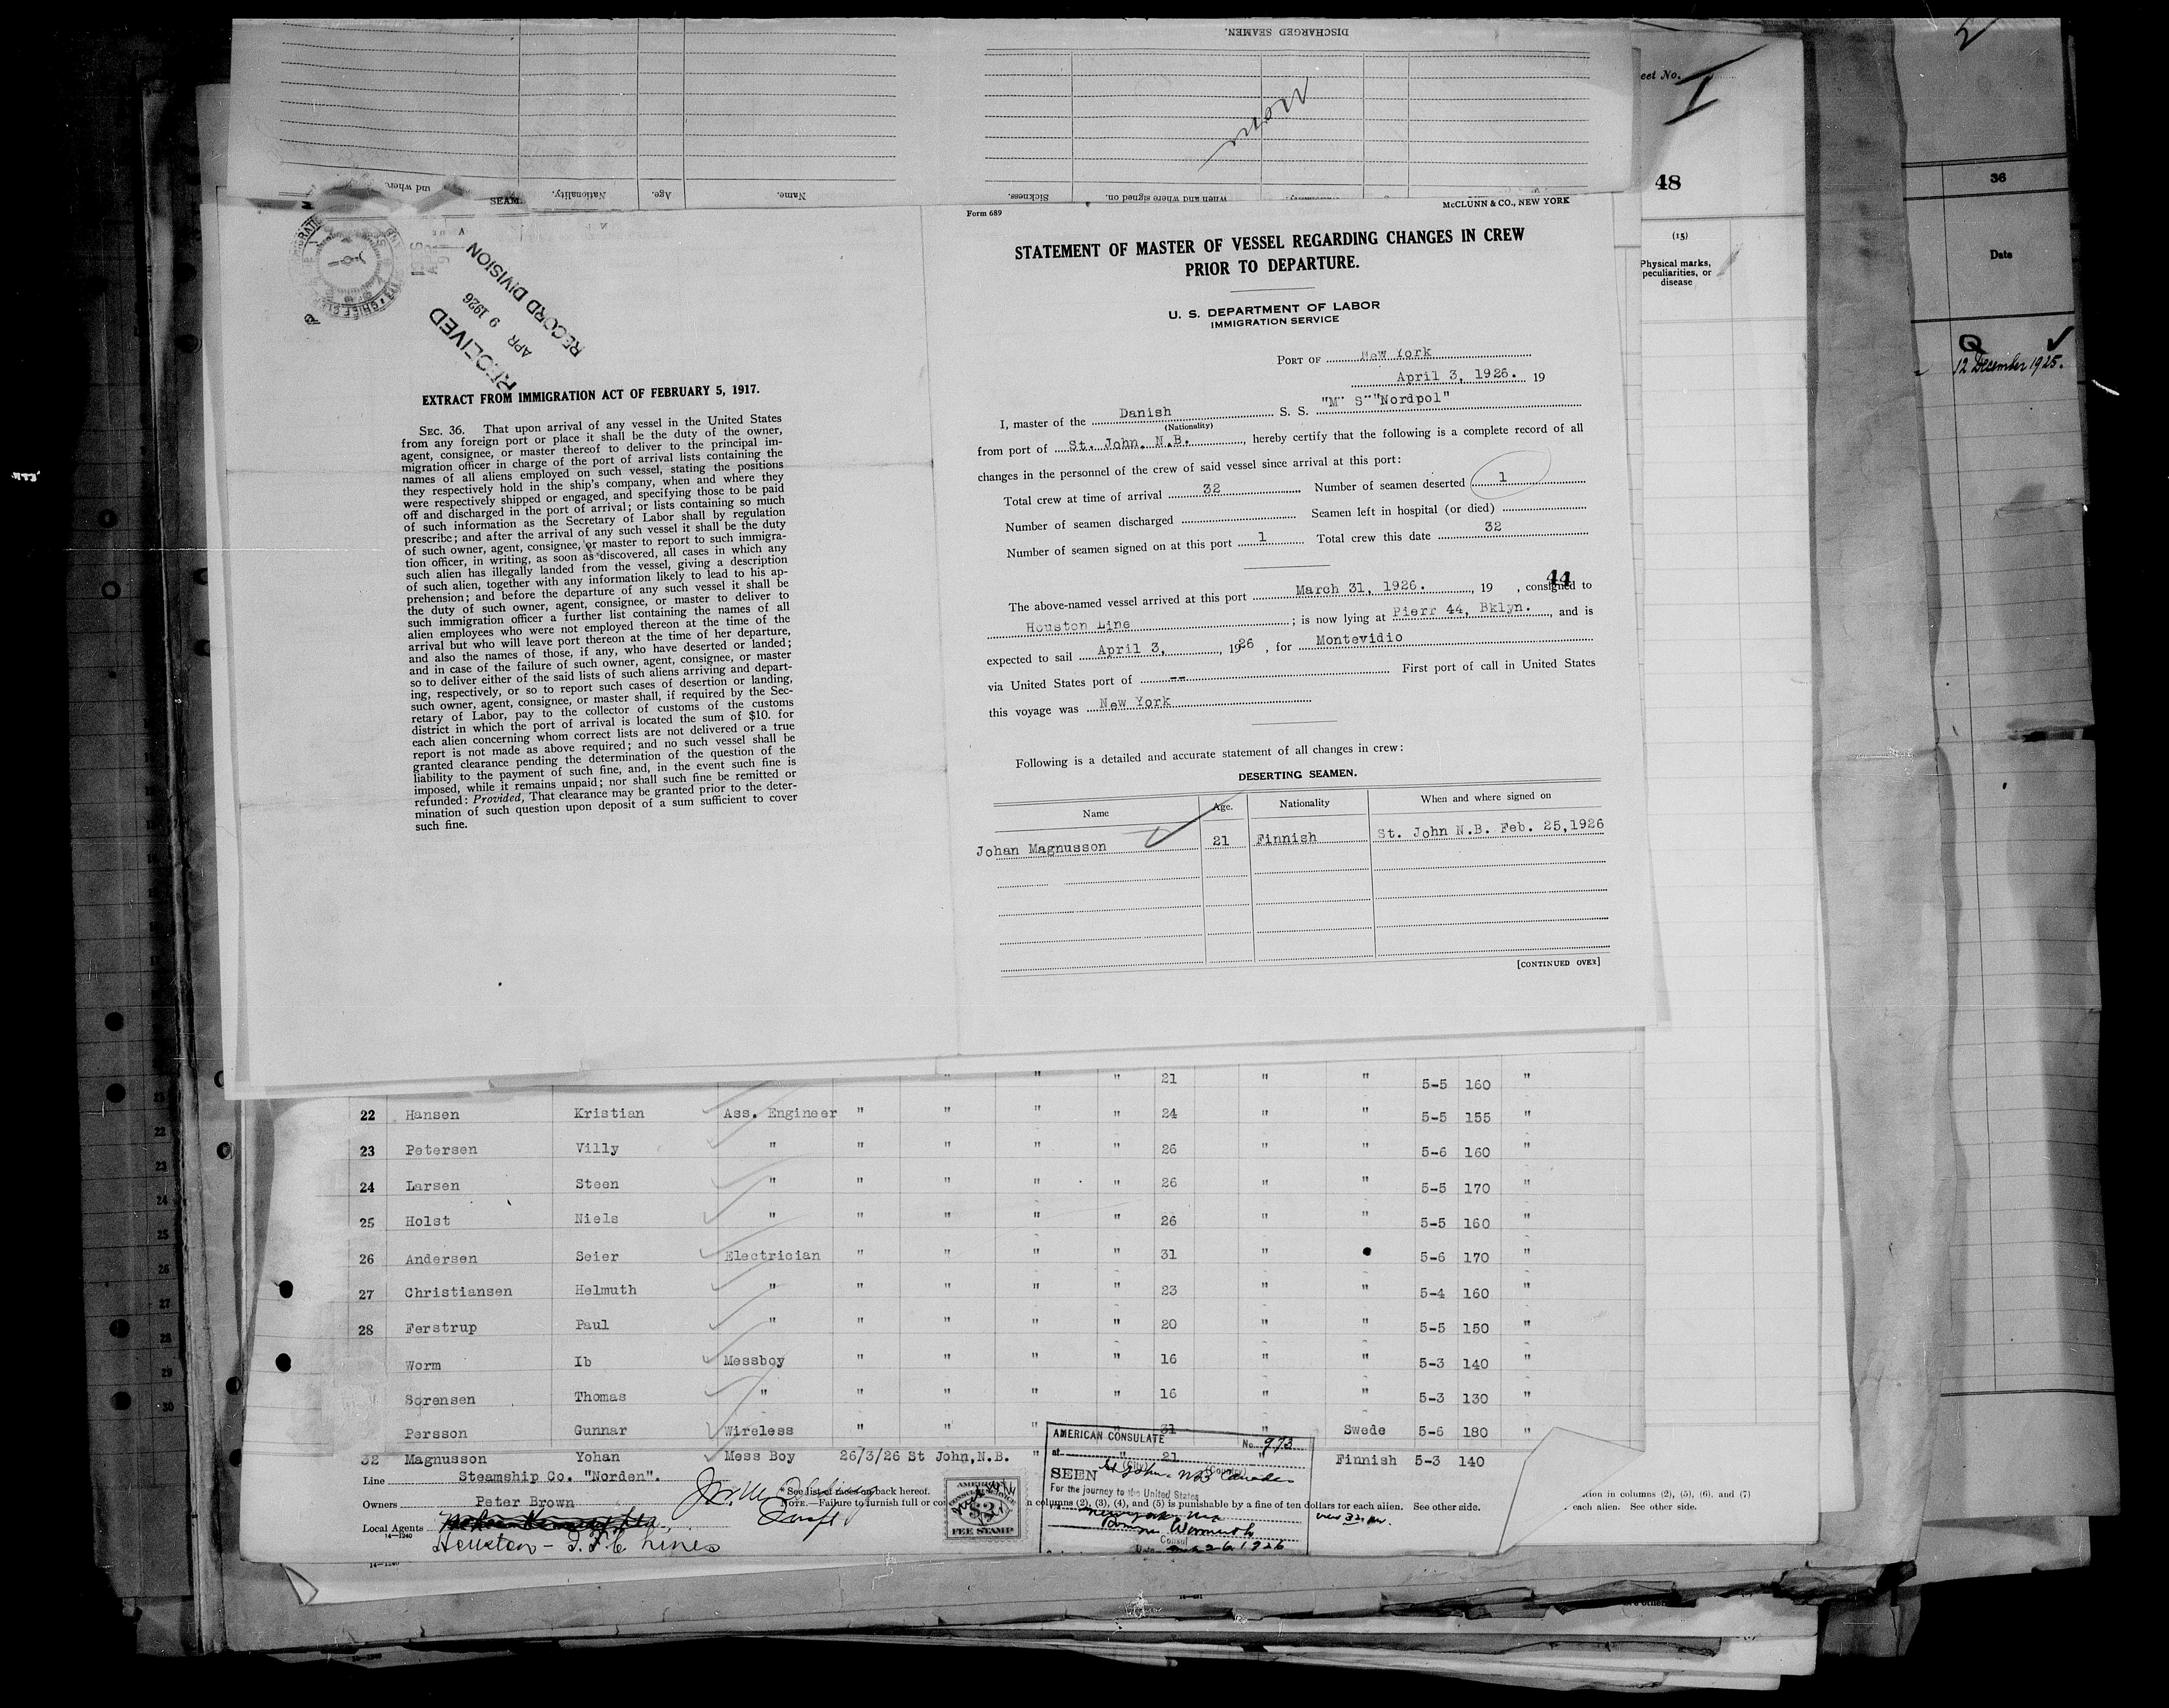 DISCHARGED SEAMEN.
Name.
Age.
Nationality.
When and where signed on.
Sickness.
SEAM
Sheet No.
I
2
48
(15)
Physical marks,
peculiarities, or
disease
36
Date
12 December 1925.
RECEIVED
APR 9 1926
RECORD DIVISION
EXTRACT FROM IMMIGRATION ACT OF FEBRUARY 5, 1917.
SEC. 36. That upon arrival of any vessel in the United States
from any foreign port or place it shall be the duty of the owner,
agent, consignee, or master thereof to deliver to the principal im-
migration officer in charge of the port of arrival lists containing the
names of all aliens employed on such vessel, stating the positions
they respectively hold in the ship's company, when and where they
were respectively shipped or engaged, and specifying those to be paid
off and discharged in the port of arrival; or lists containing so much
of such information as the Secretary of Labor shall by regulation
prescribe; and after the arrival of any such vessel it shall be the duty
of such owner, agent, consignee, or master to report to such immigra-
tion officer, in writing, as soon as discovered, all cases in which any
such alien has illegally landed from the vessel, giving a description
of such alien, together with any information likely to lead to his ap-
prehension; and before the departure of any such vessel it shall be
the duty of such owner, agent, consignee, or master to deliver to
such immigration officer a further list containing the names of all
alien employees who were not employed thereon at the time of the
arrival but who will leave port thereon at the time of her departure,
and also the names of those, if any, who have deserted or landed;
and in case of the failure of such owner, agent, consignee, or master
so to deliver either of the said lists of such aliens arriving and depart-
ing, respectively, or so to report such cases of desertion or landing,
such owner, agent, consignee, or master shall, if required by the Sec-
retary of Labor, pay to the collector of customs of the customs
district in which the port of arrival is located the sum of $10. for
each alien concerning whom correct lists are not delivered or a true
report is not made as above required; and no such vessel shall be
granted clearance pending the determination of the question of the
liability to the payment of such fine, and, in the event such fine is
imposed, while it remains unpaid; nor shall such fine be remitted or
refunded: Provided, That clearance may be granted prior to the deter-
mination of such question upon deposit of a sum sufficient to cover
such fine.
Form 689
McCLUNN & CO., NEW YORK
STATEMENT OF MASTER OF VESSEL REGARDING CHANGES IN CREW
PRIOR TO DEPARTURE.
U. S. DEPARTMENT OF LABOR
IMMIGRATION SERVICE
PORT OF New York
April 3, 1926. 19
I, master of the Danish S. S. "M" S""Nordpol"
(Nationality)
from port of St. John, N.B., hereby certify that the following is a complete record of all
changes in the personnel of the crew of said vessel since arrival at this port:
Total crew at time of arrival 32 Number of seamen deserted 1
Number of seamen discharged Seamen left in hospital (or died)
Number of seamen signed on at this port 1 Total crew this date 32
44
The above-named vessel arrived at this port March 31, 1926., 19 , consigned to
Houston Line ; is now lying at Pierr 44, Bklyn., and is
expected to sail April 3, , 1926 , for Montevidio
via United States port of -- First port of call in United States
this voyage was New York
Following is a detailed and accurate statement of all changes in crew:
DESERTING SEAMEN.
Name Age. Nationality When and where signed on
Johan Magnusson 21 Finnish St. John N.B. Feb. 25,1926
[CONTINUED OVER]
" " " 21 " " 5-5 160 "
22 Hansen Kristian Ass. Engineer " " " " 24 " " 5-5 155 "
23 Petersen Villy " " " " " 26 " " 5-6 160 "
24 Larsen Steen " " " " " 26 " " 5-5 170 "
25 Holst Niels " " " " " 26 " " 5-5 160 "
26 Andersen Seier Electrician " " " " 31 " 5-6 170 "
27 Christiansen Helmuth " " " " " 23 " " 5-4 160 "
28 Ferstrup Paul " " " " " 20 " " 5-5 150 "
Worm Ib Messboy " " " " 16 " " 5-3 140 "
Sorensen Thomas " " " " " 16 " " 5-3 130 "
Persson Gunnar Wireless " " " 31 " Swede 5-6 180 "
32 Magnusson Yohan Mess Boy 26/3/26 St John,N.B. " " 21 " Finnish 5-3 140
Line Steamship Co. "Norden".
Owners Peter Brown
Local Agents
Houston - Lines
14—1240
* See list of races on back hereof.
NOTE.—Failure to furnish full or columns (2), (3), (4), and (5) is punishable by a fine of ten dollars for each alien. See other side.
AMERICAN
CONSULAR SERVICE
$2
FEE STAMP
AMERICAN CONSULATE
No. 973
at
(City) (Country)
SEEN St John. NB Canada
For the journey to the United States
Consul
Date 26 1926
in columns (2), (5), (6), and (7)
each alien. See other side.